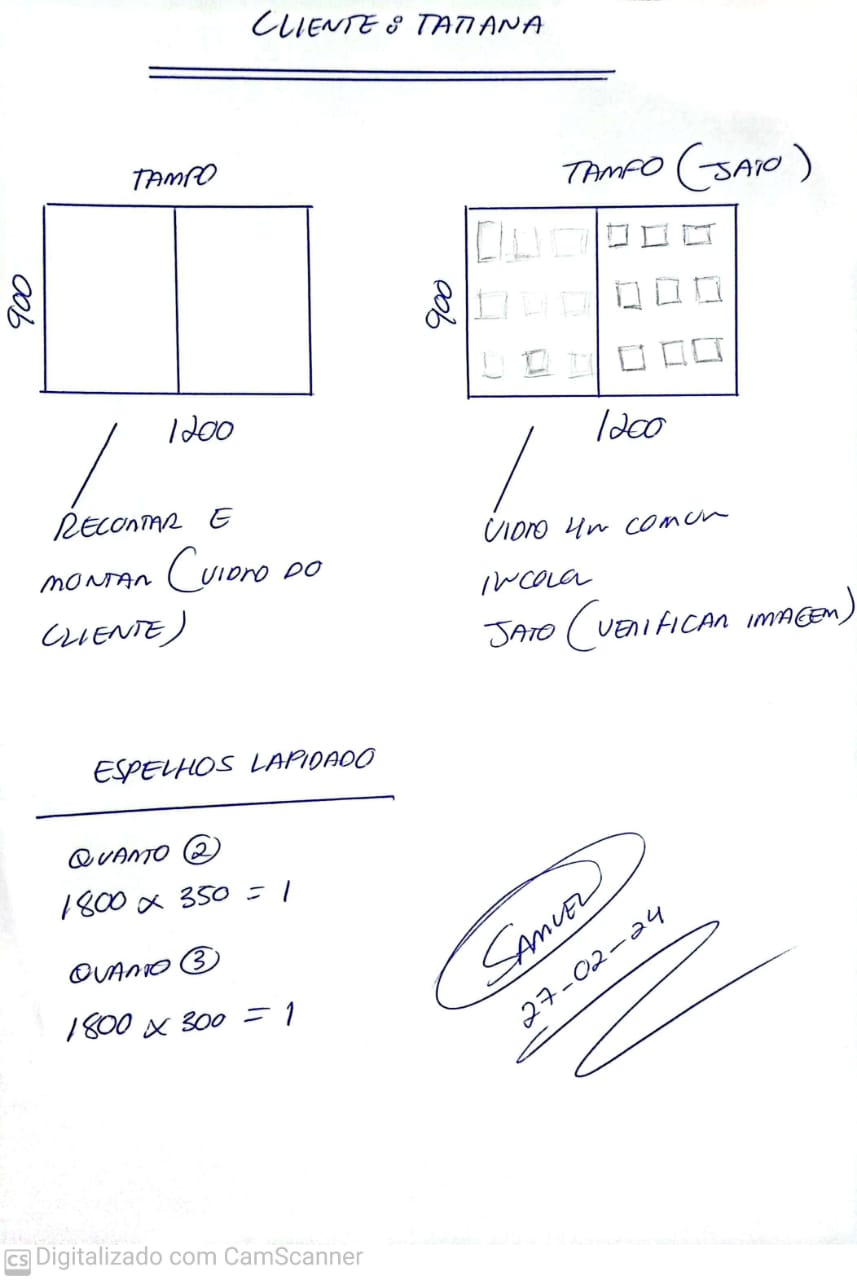 CLIENTE: TATIANA
TAMPO
900
1200
RECORTAR E
MONTAR (VIDRO DO
CLIENTE)
TAMPO (JATO)
900
1200
VIDRO 4m COMUM
INCOLOR
JATO (VERIFICAR IMAGEM)
ESPELHOS LAPIDADO
QUARTO 2
1800 x 350 = 1
QUARTO 3
1800 x 300 = 1
SAMUEL
27-02-24
CS Digitalizado com CamScanner